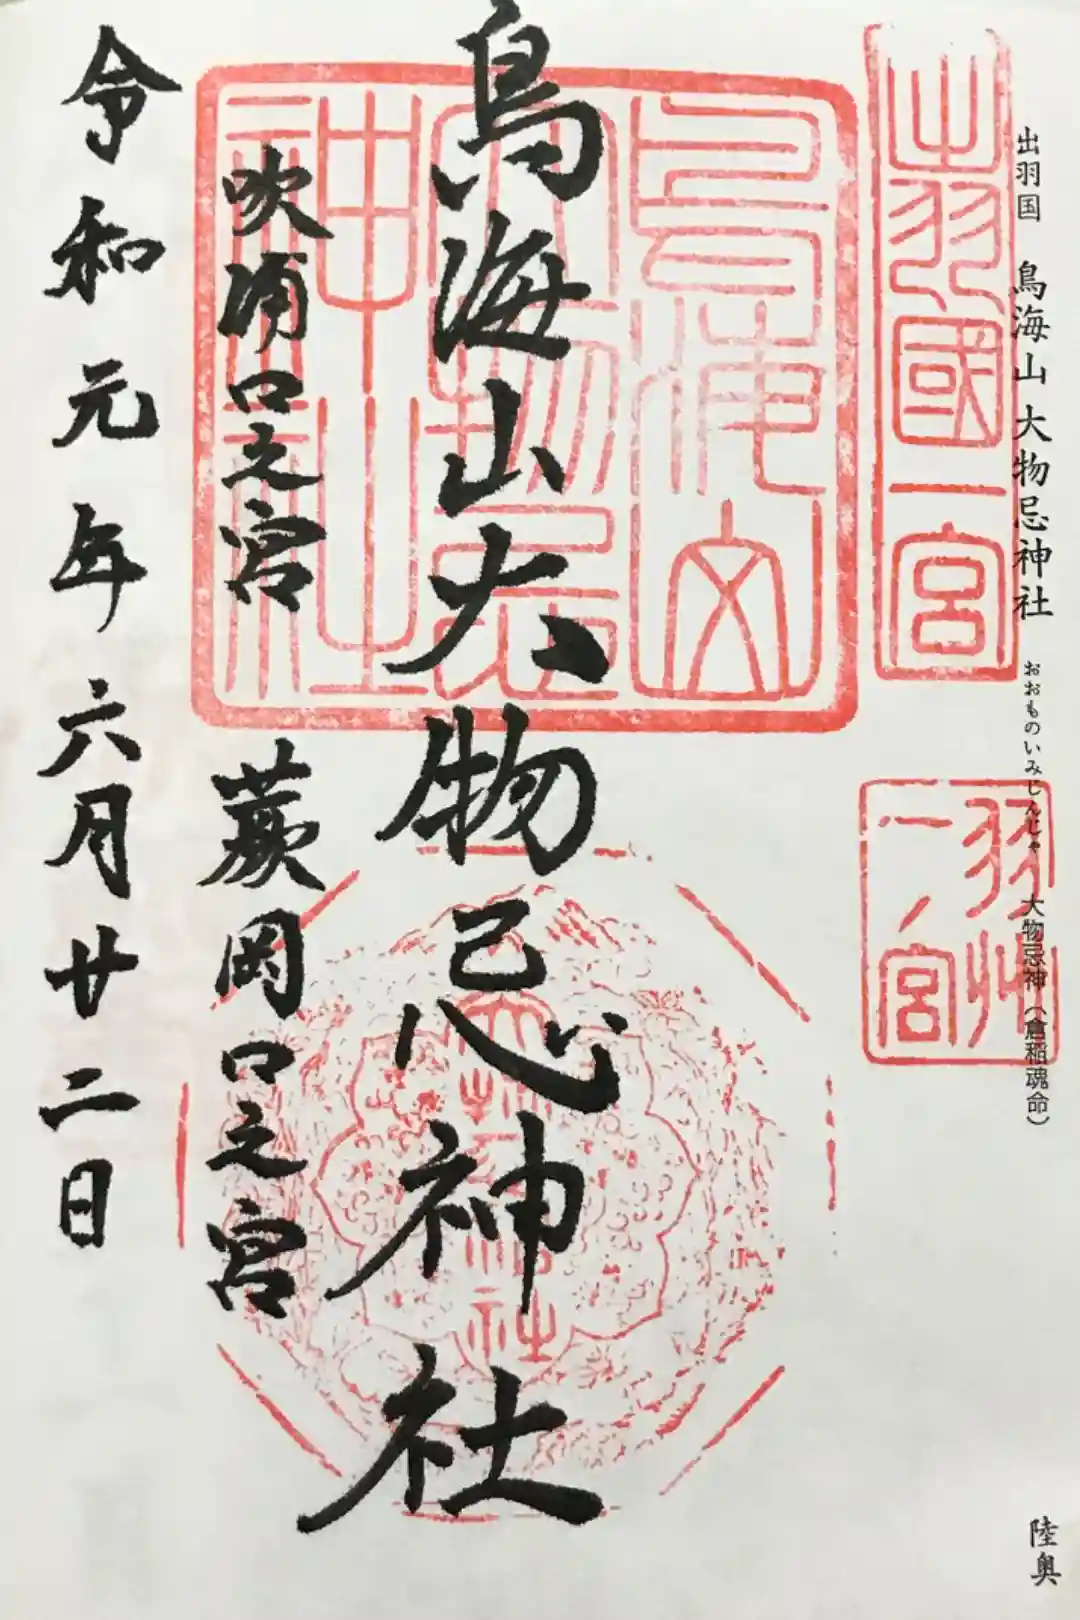 出羽国 鳥海山 大物忌神社 おおものいみじんじゃ 大物忌神(倉稲魂命)
陸奥
出羽國一宮
羽州
一ノ宮
鳥海山大物忌神社
吹浦口之宮 蕨岡口之宮
令和元年六月廿二日